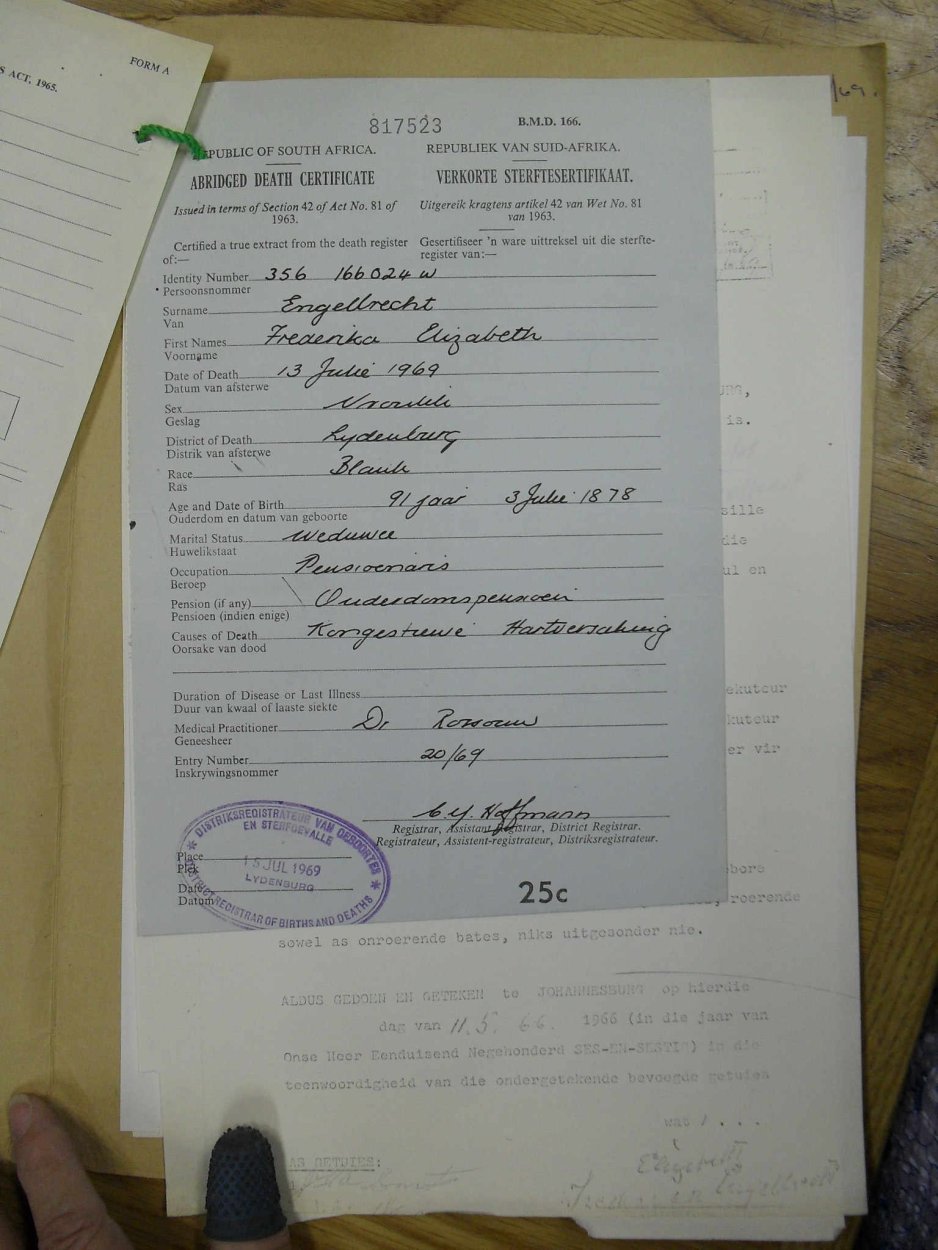 FORM A
S ACT, 1965.
/69.
817523 B.M.D. 166.
REPUBLIC OF SOUTH AFRICA. REPUBLIEK VAN SUID-AFRIKA.
ABRIDGED DEATH CERTIFICATE VERKORTE STERFTESERTIFIKAAT.
Issued in terms of Section 42 of Act No. 81 of Uitgereik kragtens artikel 42 van Wet No. 81
1963. van 1963.
Certified a true extract from the death register Gesertifiseer 'n ware uittreksel uit die sterfte-
of:— register van:—
Identity Number 356 166024 W
Persoonsnommer
Surname Engelbrecht
Van
First Names Frederika Elizabeth
Voorname
Date of Death 13 Julie 1969
Datum van afsterwe
Sex Vroulik
Geslag
District of Death Lydenburg
Distrik van afsterwe
Race Blank
Ras
Age and Date of Birth 91 jaar 3 Julie 1878
Ouderdom en datum van geboorte
Marital Status Weduwee
Huwelikstaat
Occupation Pensioenaris
Beroep
Pension (if any) Ouderdomspensioen
Pensioen (indien enige)
Causes of Death Kongestiewe Hartversaking
Oorsake van dood
Duration of Disease or Last Illness
Duur van kwaal of laaste siekte
Medical Practitioner Dr Rossouw
Geneesheer
Entry Number 20/69
Inskrywingsnommer
Hoffmann
Registrar, Assistant Registrar, District Registrar.
Registrateur, Assistent-registrateur, Distriksregistrateur.
DISTRIKSREGISTRATEUR VAN GEBOORTES
EN STERFGEVALLE
Place
Plek
15 JUL 1969
LYDENBURG
Date
Datum
DISTRICT REGISTRAR OF BIRTHS AND DEATHS
25c
URG,
is.
sille
die
ul en
ekuteur
kuteur
er vir
bore
roerende
sowel as onroerende bates, niks uitgesonder nie.
ALDUS GEDOEN EN GETEKEN te JOHANNESBURG op hierdie
dag van 11.5.66. 1966 (in die jaar van
Onse Heer Eenduisend Negehonderd SES-EN-SESTIG) in die
teenwoordigheid van die ondergetekende bevoegde getuies
was / . . .
AS GETUIES: